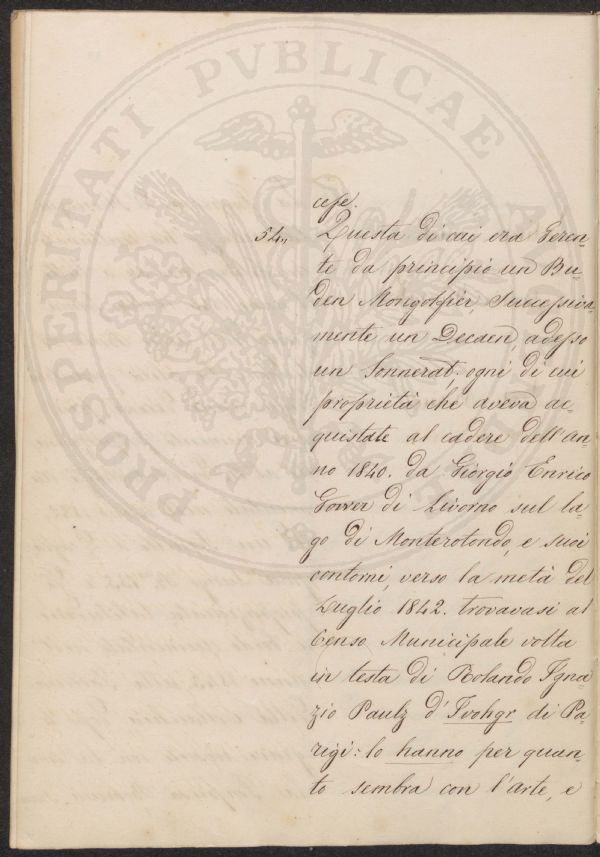 PROSPERITATI PVBLICAE
cese.
54,, Questa di cui era Geren-
te da principio un Bu-
den Mongolfier, Successiva-
mente un Decaen, adesso
un Sonnerat; ogni di cui
proprietà che aveva ac-
quistate al cadere dell'An-
no 1840. da Giorgio Enrico
Gower di Livorno sul la-
go di Monterotondo, e suoi
contorni, verso la metà del
Luglio 1842. trovavasi al
Censo Municipale volta
in testa di Rolando Igna-
zio Paulz d'Ivohgr di Pa-
rigi: lo hanno per quan-
to sembra con l'arte, e